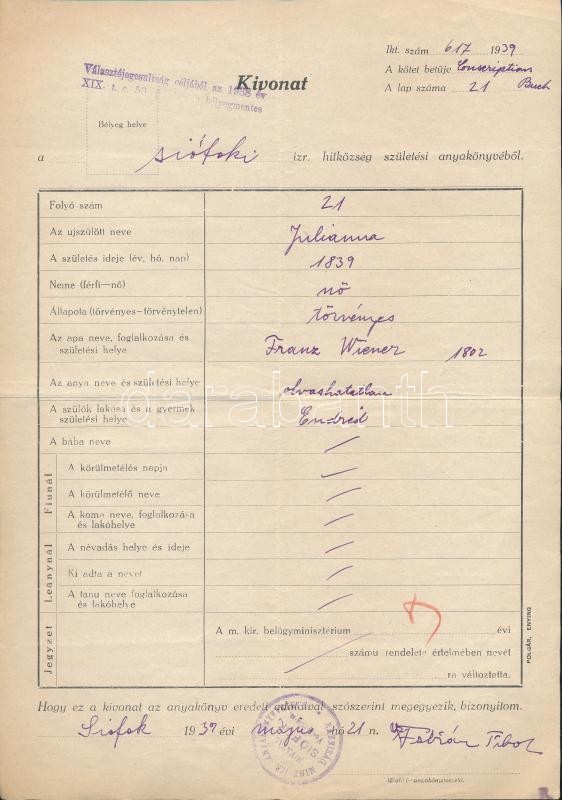 Ikt. szám 617 1939
A kötet betüje Conscriptions
A lap száma 21 Buch
Választójogosultság céljából az 1938 év
XIX. t. c. bélyegmentes
Kivonat
Bélyeg helye
a siófoki izr. hitközség születési anyakönyvéből.
Folyó szám 21
Az ujszülött neve Julianna
A születés ideje (év, hó, nap) 1839
Neme (férfi—nő) nő
Állapota (törvényes—törvénytelen) törvényes
Az apa neve, foglalkozása és
születési helye Franz Wiener 1802
Az anya neve és születési helye olvashatatlan
A szülők lakása és a gyermek
születési helye Endréd
A bába neve
Fiunál
A körülmetélés napja
A körülmetélő neve
A koma neve, foglalkozása
és lakóhelye
Leánynál
A névadás helye és ideje
Ki adta a nevet
A tanu neve foglalkozása
és lakóhelye
Jegyzet
A m. kir. belügyminisztérium évi
számu rendelete értelmében nevét
ra változtatta.
POLGÁR, ENYING
darabanth
Hogy ez a kivonat az anyakönyv eredeti adataival szószerint megegyezik, bizonyitom.
Siófok 1939 évi május hó 21 n. Fábián Tibor
SIÓFOK